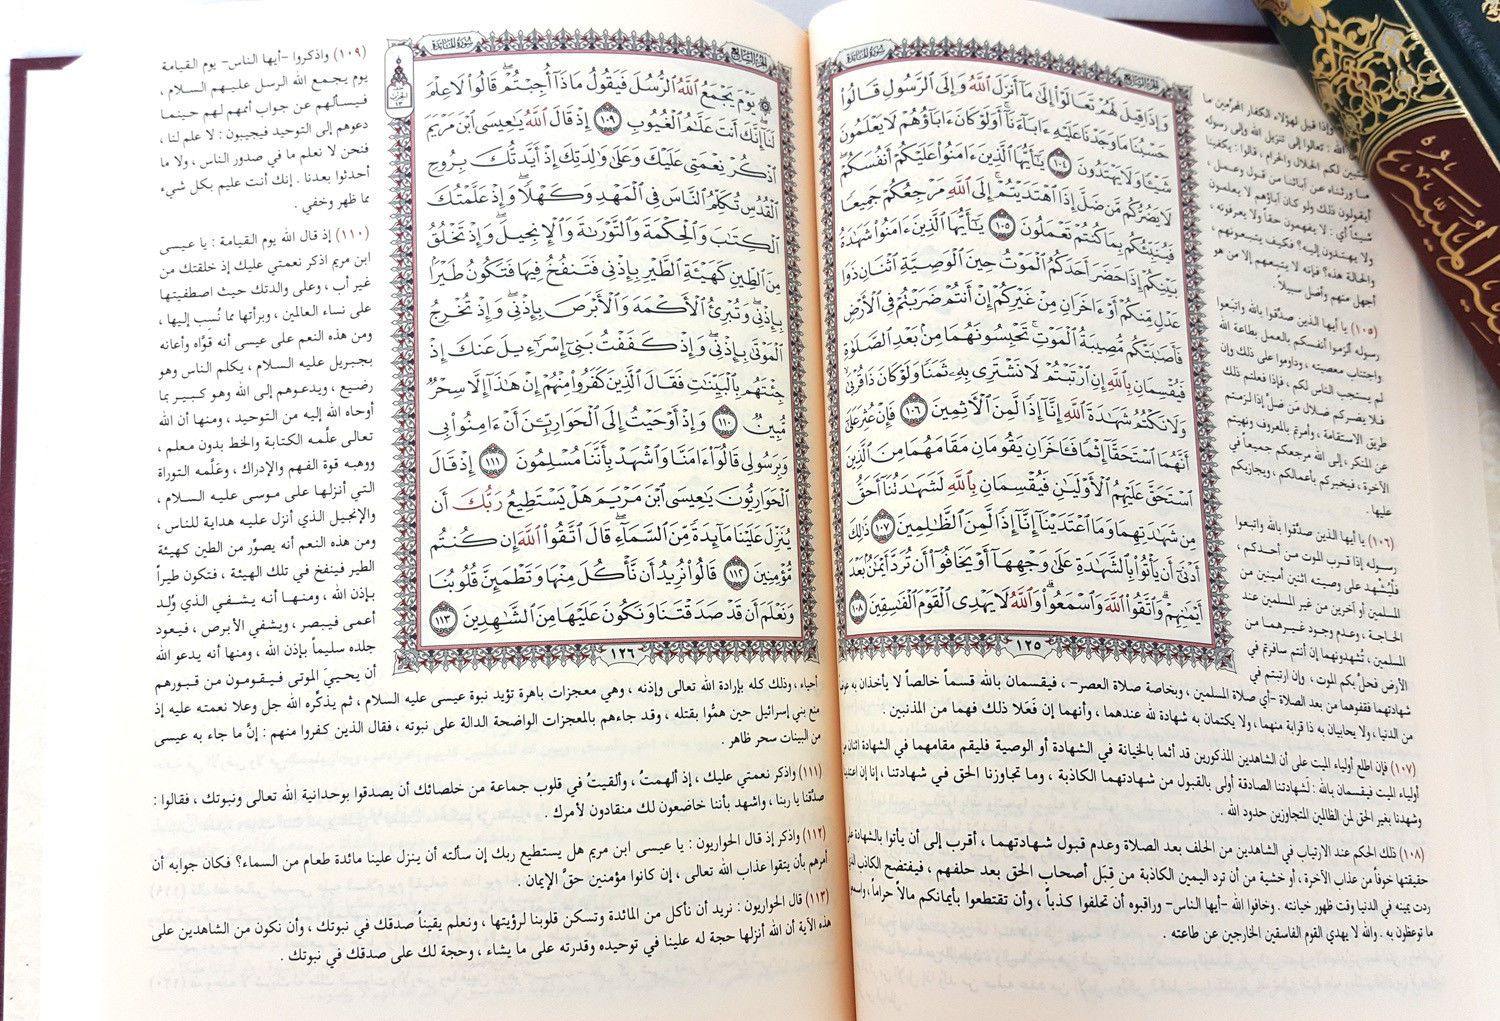 سورة المائدة
الجزء السابع
وَإِذَا قِيلَ لَهُمْ تَعَالَوْا۟ إِلَىٰ مَآ أَنزَلَ ٱللَّهُ وَإِلَى ٱلرَّسُولِ قَالُوا۟
حَسْبُنَا مَا وَجَدْنَا عَلَيْهِ ءَابَآءَنَآ أَوَلَوْ كَانَ ءَابَآؤُهُمْ لَا يَعْلَمُونَ
شَيْـًٔا وَلَا يَهْتَدُونَ ١٠٤ يَـٰٓأَيُّهَا ٱلَّذِينَ ءَامَنُوا۟ عَلَيْكُمْ أَنفُسَكُمْ
لَا يَضُرُّكُم مَّن ضَلَّ إِذَا ٱهْتَدَيْتُمْ إِلَى ٱللَّهِ مَرْجِعُكُمْ جَمِيعًا
فَيُنَبِّئُكُم بِمَا كُنتُمْ تَعْمَلُونَ ١٠٥ يَـٰٓأَيُّهَا ٱلَّذِينَ ءَامَنُوا۟ شَهَـٰدَةُ
بَيْنِكُمْ إِذَا حَضَرَ أَحَدَكُمُ ٱلْمَوْتُ حِينَ ٱلْوَصِيَّةِ ٱثْنَانِ ذَوَا
عَدْلٍ مِّنكُمْ أَوْ ءَاخَرَانِ مِنْ غَيْرِكُمْ إِنْ أَنتُمْ ضَرَبْتُمْ فِى ٱلْأَرْضِ
فَأَصَـٰبَتْكُم مُّصِيبَةُ ٱلْمَوْتِ تَحْبِسُونَهُمَا مِنۢ بَعْدِ ٱلصَّلَوٰةِ
فَيُقْسِمَانِ بِٱللَّهِ إِنِ ٱرْتَبْتُمْ لَا نَشْتَرِى بِهِۦ ثَمَنًا وَلَوْ كَانَ ذَا قُرْبَىٰ
وَلَا نَكْتُمُ شَهَـٰدَةَ ٱللَّهِ إِنَّآ إِذًا لَّمِنَ ٱلْـَٔاثِمِينَ ١٠٦ فَإِنْ عُثِرَ عَلَىٰٓ
أَنَّهُمَا ٱسْتَحَقَّآ إِثْمًا فَـَٔاخَرَانِ يَقُومَانِ مَقَامَهُمَا مِنَ ٱلَّذِينَ
ٱسْتَحَقَّ عَلَيْهِمُ ٱلْأَوْلَيَـٰنِ فَيُقْسِمَانِ بِٱللَّهِ لَشَهَـٰدَتُنَآ أَحَقُّ
مِن شَهَـٰدَتِهِمَا وَمَا ٱعْتَدَيْنَآ إِنَّآ إِذًا لَّمِنَ ٱلظَّـٰلِمِينَ ١٠٧ ذَٰلِكَ
أَدْنَىٰٓ أَن يَأْتُوا۟ بِٱلشَّهَـٰدَةِ عَلَىٰ وَجْهِهَآ أَوْ يَخَافُوٓا۟ أَن تُرَدَّ أَيْمَـٰنٌۢ بَعْدَ
أَيْمَـٰنِهِمْ وَٱتَّقُوا۟ ٱللَّهَ وَٱسْمَعُوا۟ وَٱللَّهُ لَا يَهْدِى ٱلْقَوْمَ ٱلْفَـٰسِقِينَ ١٠٨
١٢٥
وإذا قيل لهؤلاء الكفار المحرِّمين ما
الله : تعالوا إلى تنزيل الله وإلى رسوله
لكم الحلال والحرام ، قالوا : يكفينا
ما ورثناه عن آبائنا من قول وعمل ،
أيقولون ذلك ولو كان آباؤهم لا يعلمون
شيئاً أي : لا يفهمون حقاً ولا يعرفونه ،
ولا يهتدون إليه؟ فكيف يتبعونهم ،
والحالة هذه؟ فإنه لا يتبعهم إلا من هو
أجهل منهم وأضل سبيلاً .
(١٠٥) يا أيها الذين صدَّقوا بالله واتبعوا
رسوله ألزموا أنفسكم بالعمل بطاعة الله
واجتناب معصيته ، وداوموا على ذلك وإن
لم يستجب الناس لكم ، فإذا فعلتم ذلك
فلا يضركم ضلال مَن ضلَّ إذا لزمتم
طريق الاستقامة ، وأمرتم بالمعروف ونهيتم
عن المنكر ، إلى الله مرجعكم جميعاً في
الآخرة ، فيخبركم بأعمالكم ، ويجازيكم
عليها .
(١٠٦) يا أيها الذين صدَّقوا بالله واتبعوا
رسوله إذا قرب الموت من أحدكم ،
فليُشْهِد على وصيته اثنين أمينين من
المسلمين أو آخرين من غير المسلمين عند
الحاجة ، وعدم وجود غيرهما من
المسلمين ، تُشهدونهما إن أنتم سافرتم في
الأرض فحلَّ بكم الموت ، وإن ارتبتم في
شهادتهما فقفوهما من بعد الصلاة -أي صلاة المسلمين ، وبخاصة صلاة العصر- ، فيقسمان بالله قسماً خالصاً لا يأخذان به
من الدنيا ، ولا يحابيان به ذا قرابة منهما ، ولا يكتمان به شهادة لله عندهما ، وأنهما إن فَعَلا ذلك فهما من المذنبين .
(١٠٧) فإن اطلع أولياء الميت على أن الشاهدين المذكورين قد أثما بالخيانة في الشهادة أو الوصية فليقم مقامهما في الشهادة اثنان
أولياء الميت فيقسمان بالله : لَشهادتنا الصادقة أولى بالقبول من شهادتهما الكاذبة ، وما تجاوزنا الحق في شهادتنا ، إنا إن
وشهدنا بغير الحق لمن الظالمين المتجاوزين حدود الله .
(١٠٨) ذلك الحكم عند الارتياب في الشاهدين من الحلف بعد الصلاة وعدم قبول شهادتهما ، أقرب إلى أن يأتوا بالشهادة
حقيقتها خوفاً من عذاب الآخرة ، أو خشية من أن ترد اليمين الكاذبة من قِبَل أصحاب الحق بعد حلفهم ، فيفتضح الكاذب
ردت يمينه في الدنيا وقت ظهور خيانته . وخافوا الله -أيها الناس- وراقبوه أن تحلفوا كذباً ، وأن تقتطعوا بأيمانكم مالاً حراماً ،
ما توعظون به . والله لا يهدي القوم الفاسقين الخارجين عن طاعته .
الجزء السابع
سورة المائدة
يَوْمَ يَجْمَعُ ٱللَّهُ ٱلرُّسُلَ فَيَقُولُ مَاذَآ أُجِبْتُمْ قَالُوا۟ لَا عِلْمَ
لَنَآ إِنَّكَ أَنتَ عَلَّـٰمُ ٱلْغُيُوبِ ١٠٩ إِذْ قَالَ ٱللَّهُ يَـٰعِيسَى ٱبْنَ مَرْيَمَ
ٱذْكُرْ نِعْمَتِى عَلَيْكَ وَعَلَىٰ وَٰلِدَتِكَ إِذْ أَيَّدتُّكَ بِرُوحِ
ٱلْقُدُسِ تُكَلِّمُ ٱلنَّاسَ فِى ٱلْمَهْدِ وَكَهْلًا وَإِذْ عَلَّمْتُكَ
ٱلْكِتَـٰبَ وَٱلْحِكْمَةَ وَٱلتَّوْرَىٰةَ وَٱلْإِنجِيلَ وَإِذْ تَخْلُقُ
مِنَ ٱلطِّينِ كَهَيْـَٔةِ ٱلطَّيْرِ بِإِذْنِى فَتَنفُخُ فِيهَا فَتَكُونُ طَيْرًۢا
بِإِذْنِى وَتُبْرِئُ ٱلْأَكْمَهَ وَٱلْأَبْرَصَ بِإِذْنِى وَإِذْ تُخْرِجُ
ٱلْمَوْتَىٰ بِإِذْنِى وَإِذْ كَفَفْتُ بَنِىٓ إِسْرَٰٓءِيلَ عَنكَ إِذْ
جِئْتَهُم بِٱلْبَيِّنَـٰتِ فَقَالَ ٱلَّذِينَ كَفَرُوا۟ مِنْهُمْ إِنْ هَـٰذَآ إِلَّا سِحْرٌ
مُّبِينٌ ١١٠ وَإِذْ أَوْحَيْتُ إِلَى ٱلْحَوَارِيِّـۧنَ أَنْ ءَامِنُوا۟ بِى
وَبِرَسُولِى قَالُوٓا۟ ءَامَنَّا وَٱشْهَدْ بِأَنَّنَا مُسْلِمُونَ ١١١ إِذْ قَالَ
ٱلْحَوَارِيُّونَ يَـٰعِيسَى ٱبْنَ مَرْيَمَ هَلْ يَسْتَطِيعُ رَبُّكَ أَن
يُنَزِّلَ عَلَيْنَا مَآئِدَةً مِّنَ ٱلسَّمَآءِ قَالَ ٱتَّقُوا۟ ٱللَّهَ إِن كُنتُم
مُّؤْمِنِينَ ١١٢ قَالُوا۟ نُرِيدُ أَن نَّأْكُلَ مِنْهَا وَتَطْمَئِنَّ قُلُوبُنَا
وَنَعْلَمَ أَن قَدْ صَدَقْتَنَا وَنَكُونَ عَلَيْهَا مِنَ ٱلشَّـٰهِدِينَ ١١٣
١٢٦
(١٠٩) واذكروا -أيها الناس- يوم القيامة
يوم يجمع الله الرسل عليهم السلام ،
فيسألهم عن جواب أممهم لهم حينما
دعوهم إلى التوحيد فيجيبون : لا علم لنا ،
فنحن لا نعلم ما في صدور الناس ، ولا ما
أحدثوا بعدنا . إنك أنت عليم بكل شيء
مما ظهر وخفي .
(١١٠) إذ قال الله يوم القيامة : يا عيسى
ابن مريم اذكر نعمتي عليك إذ خلقتك من
غير أب ، وعلى والدتك حيث اصطفيتها
على نساء العالمين ، وبرأتها مما نُسِب إليها ،
ومن هذه النعم على عيسى أنه قوَّاه وأعانه
بجبريل عليه السلام ، يكلم الناس وهو
رضيع ، ويدعوهم إلى الله وهو كبير بما
أوحاه الله إليه من التوحيد ، ومنها أن الله
تعالى علَّمه الكتابة والخط بدون معلم ،
ووهبه قوة الفهم والإدراك ، وعَلَّمه التوراة
التي أنزلها على موسى عليه السلام ،
والإنجيل الذي أنزل عليه هداية للناس ،
ومن هذه النعم أنه يصوِّر من الطين كهيئة
الطير فينفخ في تلك الهيئة ، فتكون طيراً
بإذن الله ، ومنها أنه يشفي الذي وُلِد
أعمى فيبصر ، ويشفي الأبرص ، فيعود
جلده سليماً بإذن الله ، ومنها أنه يدعو الله
أن يحييَ الموتى فيقومون من قبورهم
أحياء ، وذلك كله بإرادة الله تعالى وإذنه ، وهي معجزات باهرة تؤيد نبوة عيسى عليه السلام ، ثم يذكِّره الله جل وعلا نعمته عليه إذ
منع بني إسرائيل حين همُّوا بقتله ، وقد جاءهم بالمعجزات الواضحة الدالة على نبوته ، فقال الذين كفروا منهم : إنَّ ما جاء به عيسى
من البينات سحر ظاهر .
(١١١) واذكر نعمتي عليك ، إذ ألهمتُ ، وألقيتُ في قلوب جماعة من خلصائك أن يصدقوا بوحدانية الله تعالى ونبوتك ، فقالوا :
صدَّقنا يا ربنا ، واشهد بأننا خاضعون لك منقادون لأمرك .
(١١٢) واذكر إذ قال الحواريون : يا عيسى ابن مريم هل يستطيع ربك إن سألته أن ينزل علينا مائدة طعام من السماء؟ فكان جوابه أن
أمرهم بأن يتقوا عذاب الله تعالى ، إن كانوا مؤمنين حقَّ الإيمان .
(١١٣) قال الحواريون : نريد أن نأكل من المائدة وتسكن قلوبنا لرؤيتها ، ونعلم يقيناً صدقك في نبوتك ، وأن نكون من الشاهدين على
هذه الآية أن الله أنزلها حجة له علينا في توحيده وقدرته على ما يشاء ، وحجة لك على صدقك في نبوتك .
الميسر